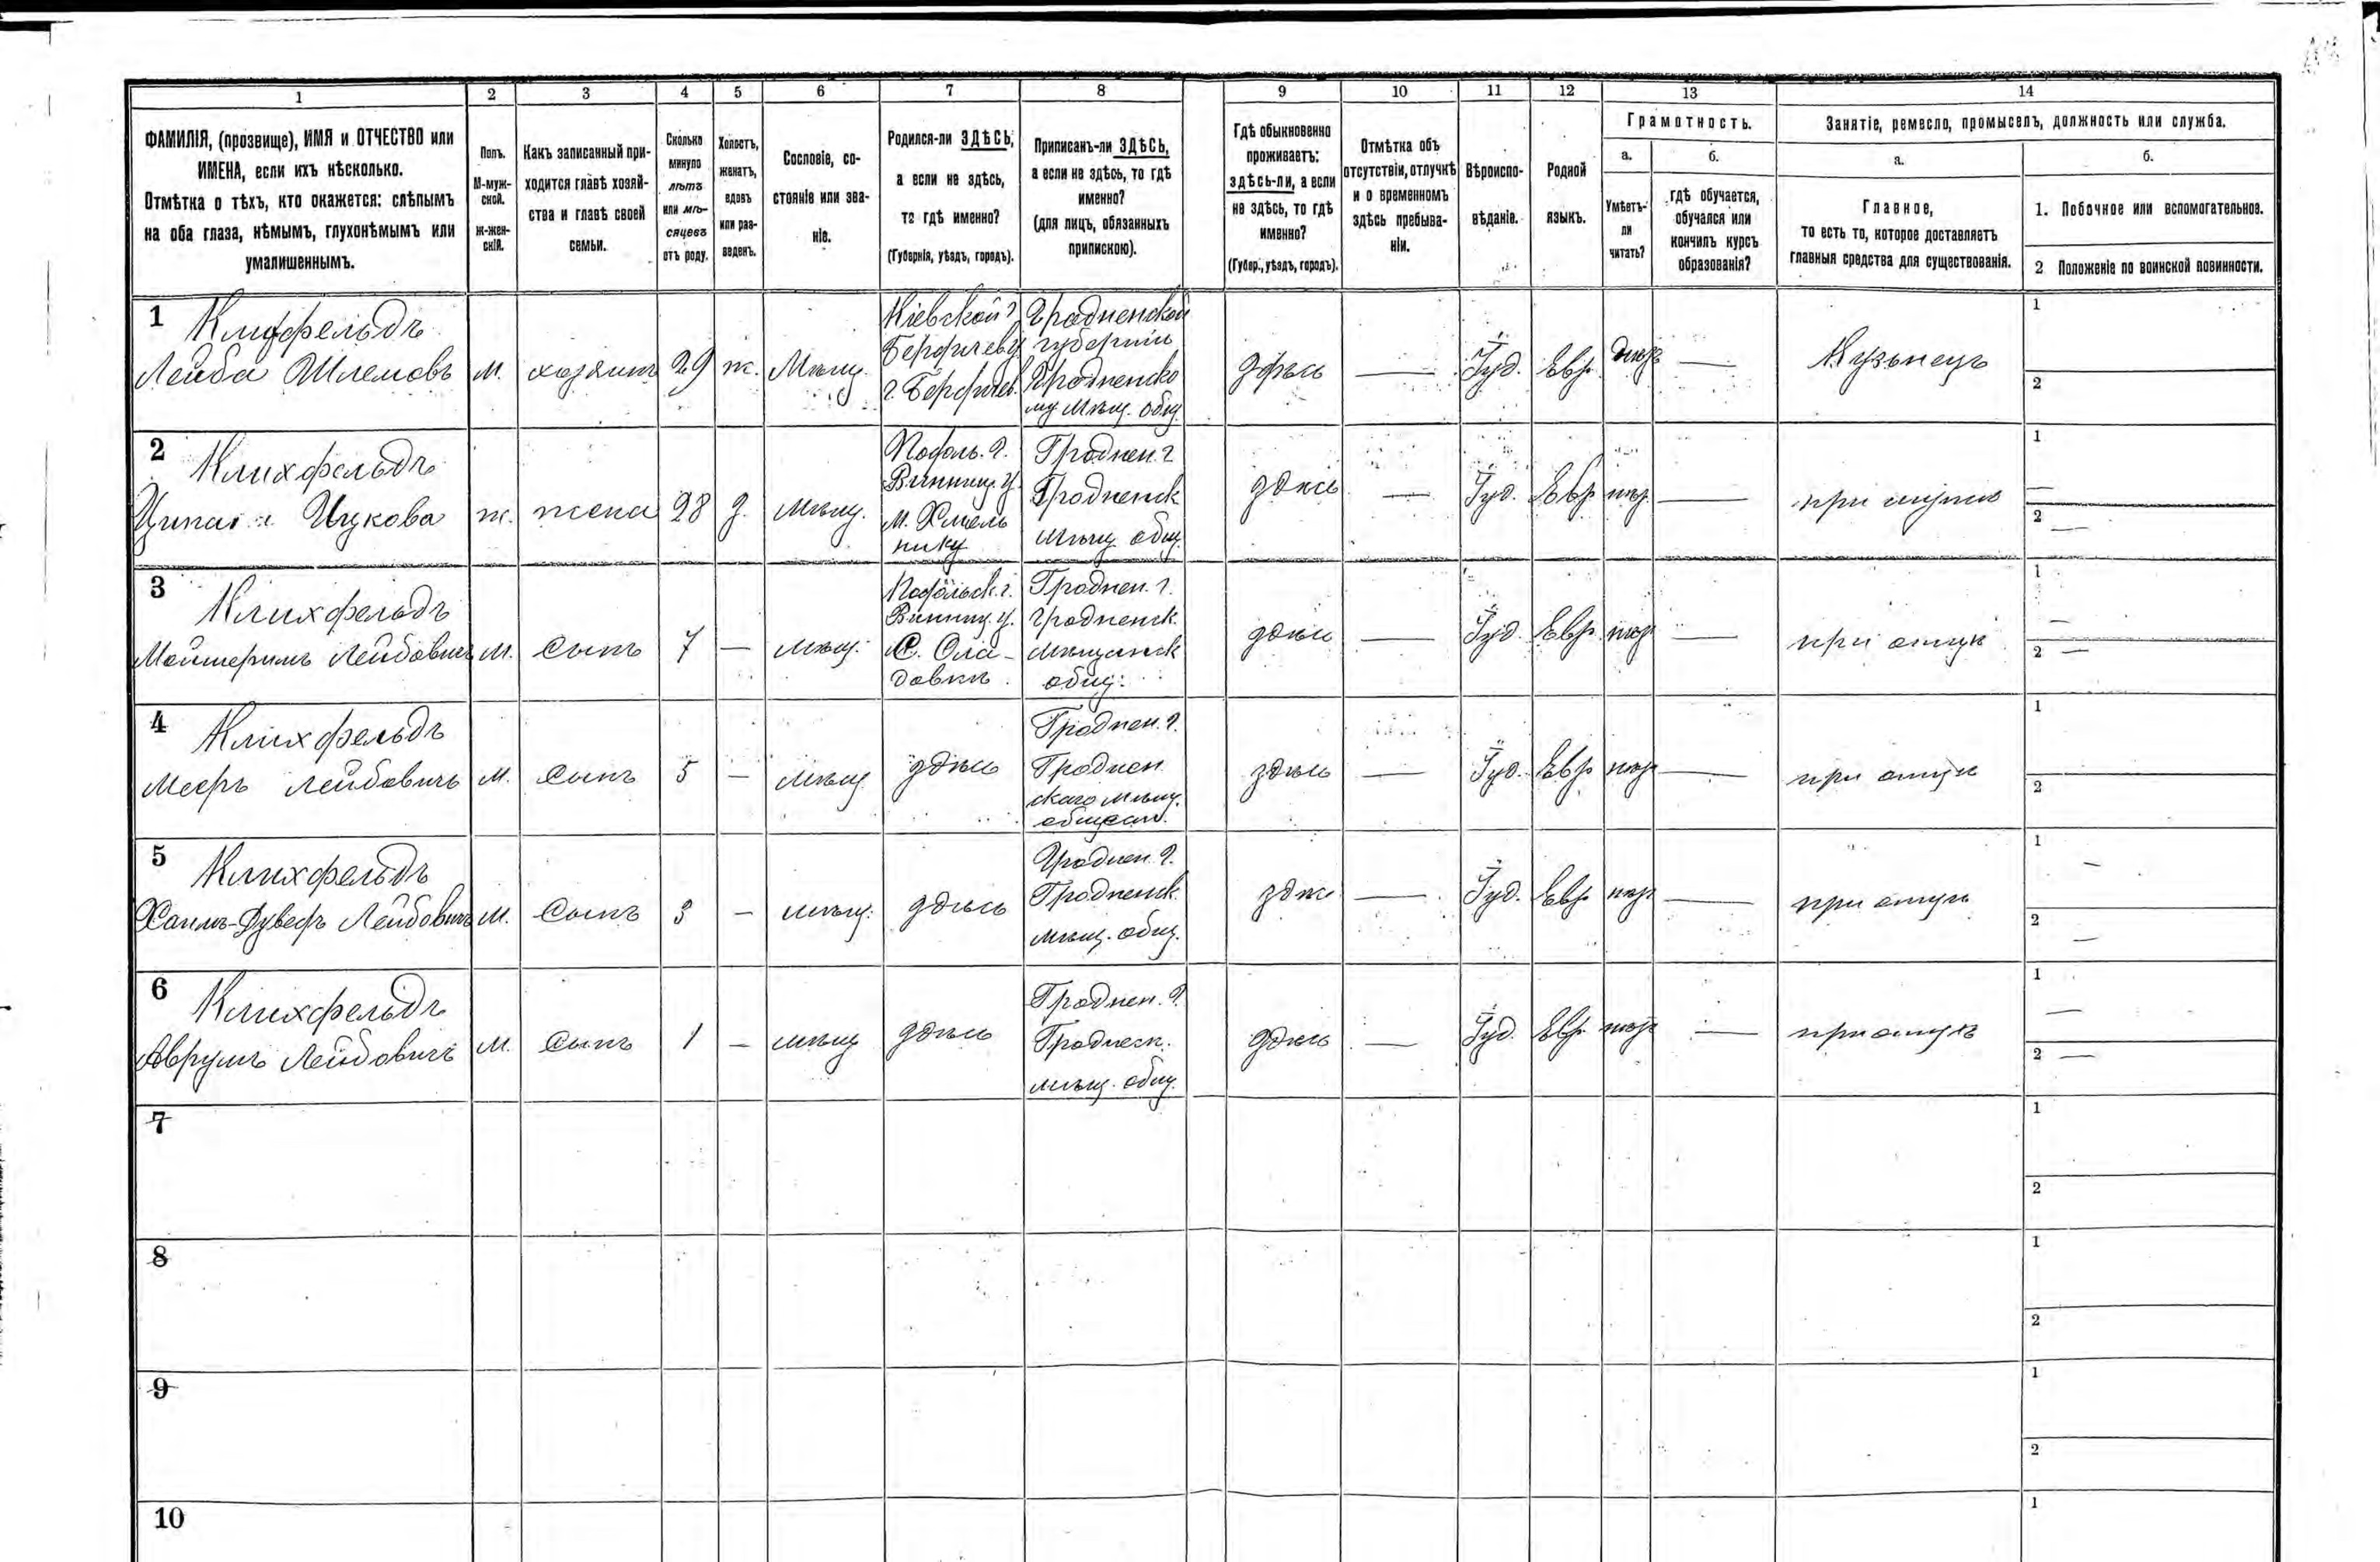 1 2 3 4 5 6 7 8 9 10 11 12 13 14
ФАМИЛІЯ, (прозвище), ИМЯ и ОТЧЕСТВО или
ИМЕНА, если ихъ нѣсколько.
Отмѣтка о тѣхъ, кто окажется: слѣпымъ
на оба глаза, нѣмымъ, глухонѣмымъ или
умалишеннымъ.
Полъ.
М-муж-
ской.
ж-жен-
скій.
Какъ записанный при-
ходится главѣ хозяй-
ства и главѣ своей
семьи.
Сколько
минуло
лѣтъ
или мѣ-
сяцевъ
отъ роду.
Холостъ,
женатъ,
вдовъ
или раз-
веденъ.
Сословіе, со-
стояніе или зва-
ніе.
Родился-ли ЗДѢСЬ,
а если не здѣсь,
то гдѣ именно?
(Губернія, уѣздъ, городъ).
Приписанъ-ли ЗДѢСЬ,
а если не здѣсь, то гдѣ
именно?
(для лицъ, обязанныхъ
припискою).
Гдѣ обыкновенно
проживаетъ:
здѣсь-ли, а если
не здѣсь, то гдѣ
именно?
(Губер., уѣздъ, городъ).
Отмѣтка объ
отсутствіи, отлучкѣ
и о временномъ
здѣсь пребыва-
ніи.
Вѣроиспо-
вѣданіе.
Родной
языкъ.
Грамотность.
а.
Умѣетъ-
ли
читать?
б.
гдѣ обучается,
обучался или
кончилъ курсъ
образованія?
Занятіе, ремесло, промыселъ, должность или служба.
а.
Главное,
то есть то, которое доставляетъ
главныя средства для существованія.
б.
1. Побочное или вспомогательное.
2 Положеніе по воинской повинности.
1
Клихфельдъ
Лейба Шлемовъ
м.
хозяинъ
29
ж.
Мѣщ.
Кіевской г.
Бердичев у
г. Бердичев.
Гродненской
губерніи
Гродненско
му Мѣщ. общ.
здѣсь
—
Іуд.
Евр.
—
Кузнецъ
1
2
2
Клихфельдъ
Ицкова
ж.
жена
28
з.
мѣщ.
Подоль. г.
Винниц. у.
м. Хмель
нику
Гроднен. г
Гродненск
мѣщ общ.
здѣсь
—
Іуд.
Евр
—
при мужѣ
1
—
2
—
3
Клихфельдъ
Лейбовичъ
м.
сынъ
7
—
мѣщ.
Подольск. г.
Винниц. у.
С. Ола-
довкѣ
Гроднен. г.
Гродненск.
Мѣщанск
общ.
здѣсь
—
Іуд.
Евр.
—
при отцѣ
1
—
2 —
4
Клихфельдъ
Мееръ Лейбовичъ
м.
сынъ
5
—
мѣщ.
здѣсь
Гроднен. г.
Гроднен
скаго мѣщ.
здѣсь
—
Іуд.
Евр.
—
при отцѣ
1
2
5
Клихфельдъ
Лейбовичъ
м.
сынъ
3
—
мѣщ.
здѣсь
Гроднен. г.
Гродненск.
мѣщ. общ.
здѣсь
—
Іуд.
Евр.
—
при отцѣ
1
—
2
—
6
Клихфельдъ
Аврумъ Лейбовичъ
м.
сынъ
1
—
мѣщ
здѣсь
Гроднен. г.
Гродненск.
мѣщ. общ.
здѣсь
—
Іуд.
Евр.
—
при отцѣ
1
—
2 —
7
1
2
8
1
2
9
1
2
10
1